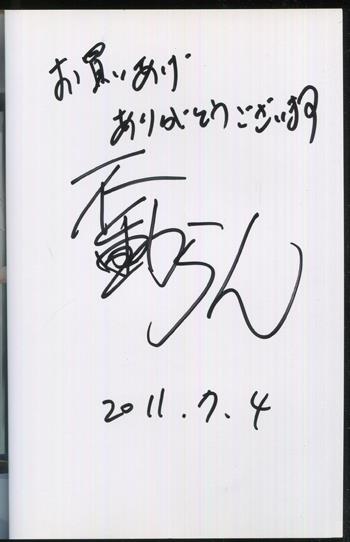 お買いあげ
ありがとうございます
不動らん
2011.7.4